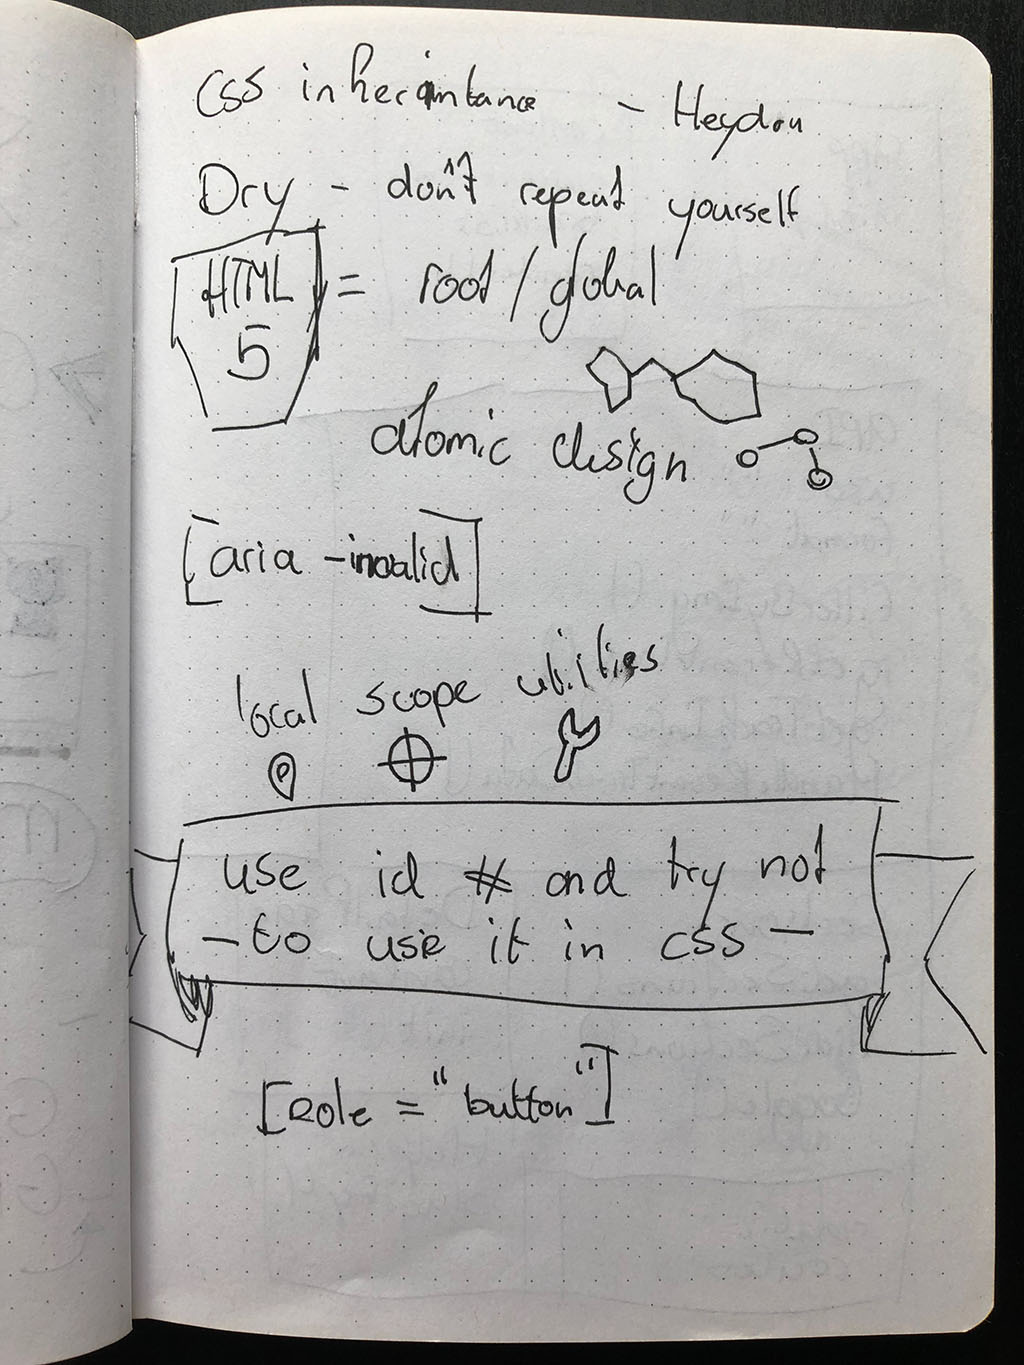 CSS inheritance - Heydon
Dry - don't repeat yourself
HTML
5
= root / global
atomic design
[aria-invalid]
local scope utilities
use id # and try not
- to use it in css -
[role = "button"]